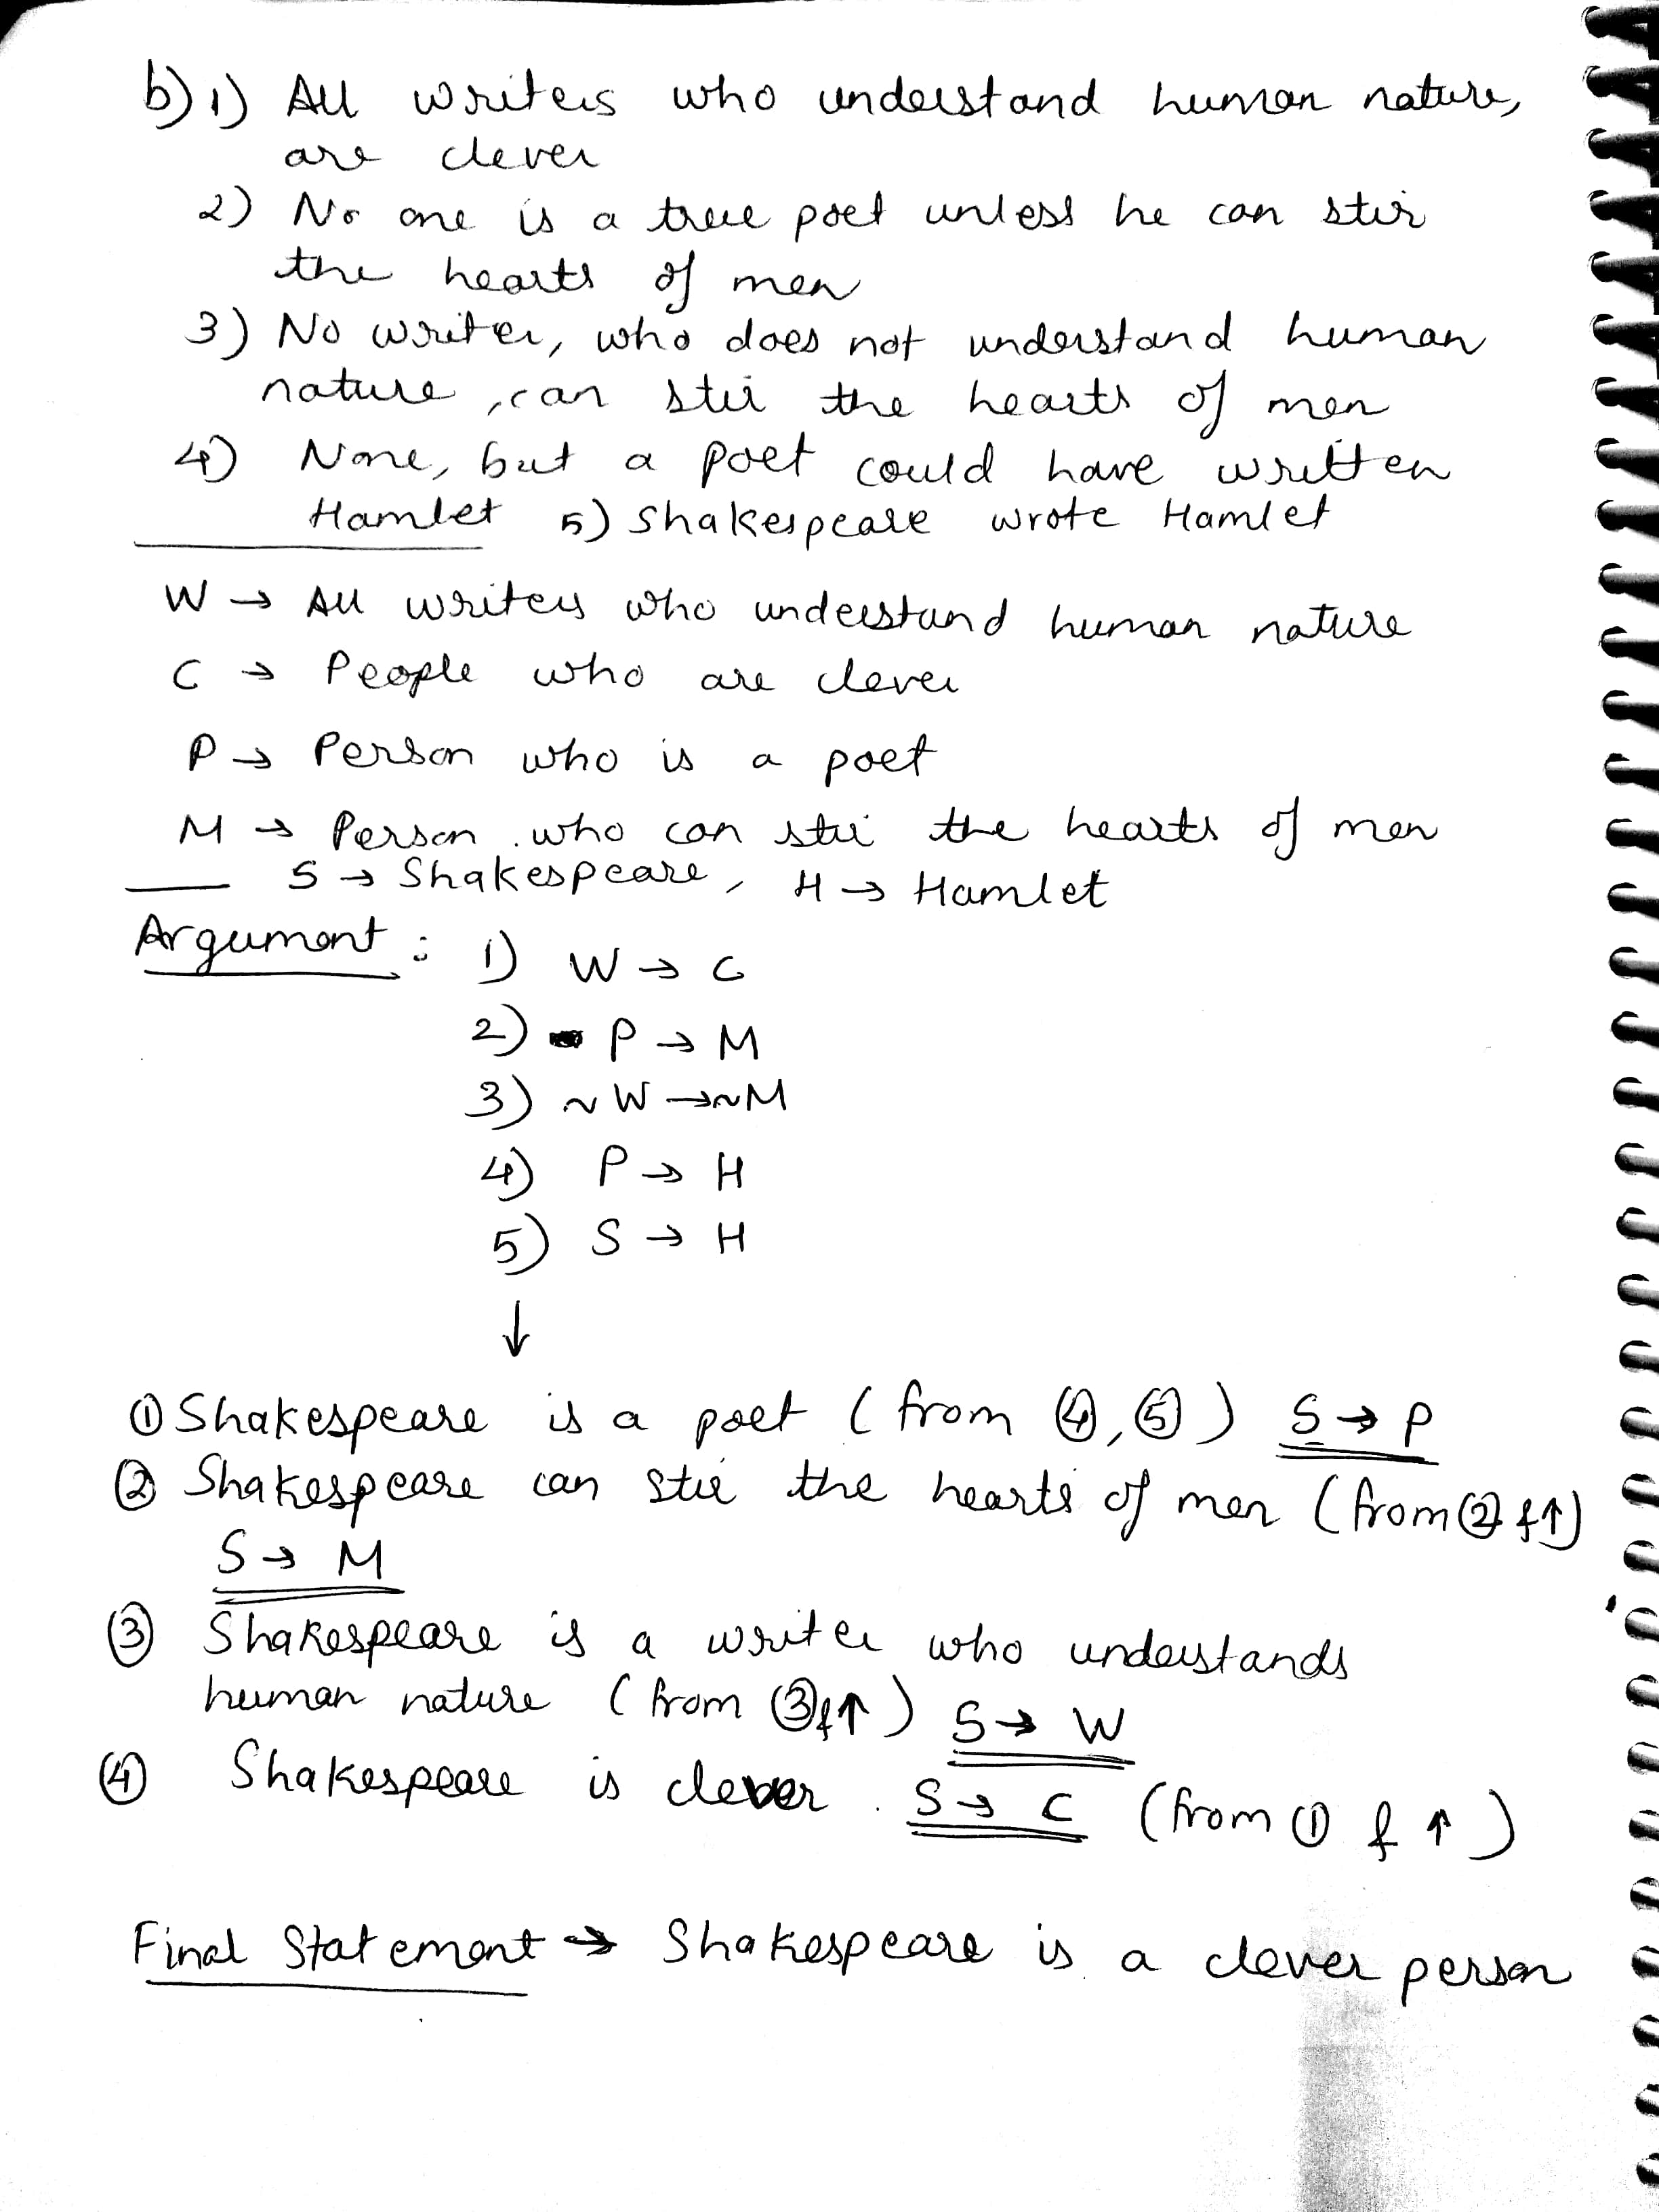 b) 1) All writers who understand human nature,
are clever
2) No one is a true poet unless he can stir
the hearts of men
3) No writer, who does not understand human
nature, can stir the hearts of men
4) None, but a poet could have written
Hamlet 5) Shakespeare wrote Hamlet
W → All writers who understand human nature
C → People who are clever
P → Person who is a poet
M → Person who can stir the hearts of men
S → Shakespeare, H → Hamlet
Argument : 1) W → C
2) P → M
3) ~W → ~M
4) P → H
5) S → H
↓
① Shakespeare is a poet (from ④, ⑤) S → P
② Shakespeare can stir the hearts of men (from ② & ↑)
S → M
③ Shakespeare is a writer who understands
human nature (from ③ & ↑) S → W
④ Shakespeare is clever. S → C (from ① & ↑)
Final Statement → Shakespeare is a clever person